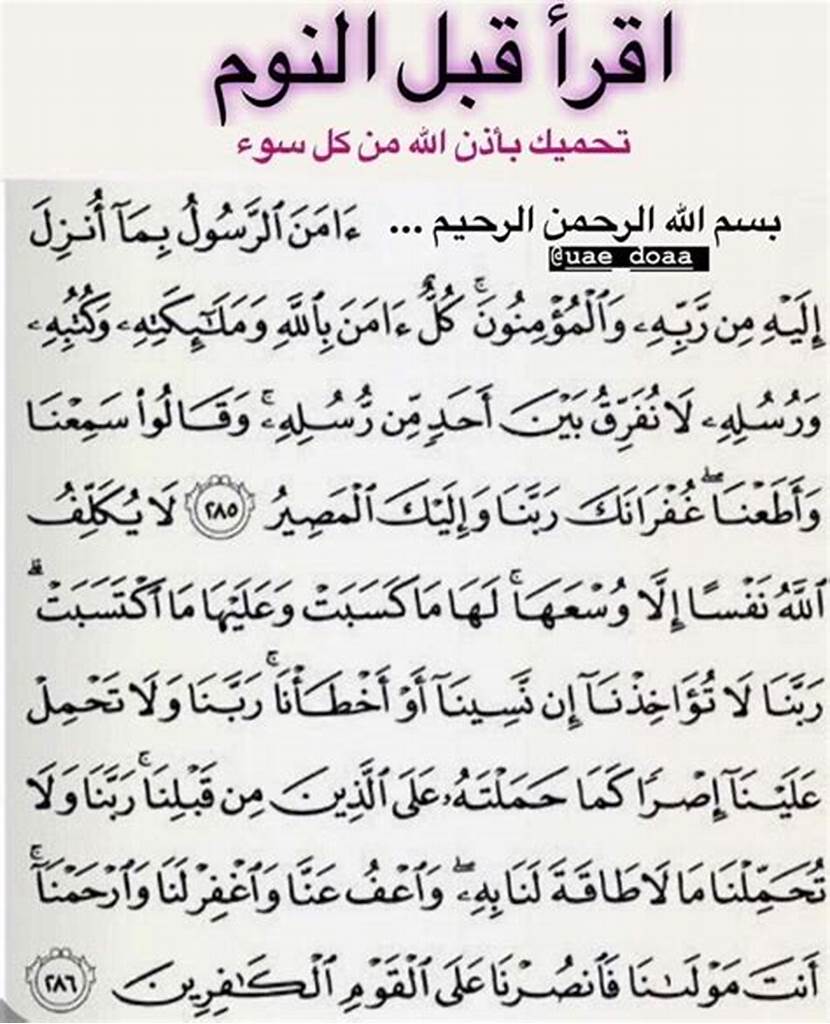 اقرأ قبل النوم
تحميك بأذن الله من كل سوء
بسم الله الرحمن الرحيم ... ءَامَنَ ٱلرَّسُولُ بِمَآ أُنزِلَ
@uae_doaa
إِلَيْهِ مِن رَّبِّهِۦ وَٱلْمُؤْمِنُونَ ۚ كُلٌّ ءَامَنَ بِٱللَّهِ وَمَلَٰٓئِكَتِهِۦ وَكُتُبِهِۦ
وَرُسُلِهِۦ لَا نُفَرِّقُ بَيْنَ أَحَدٍ مِّن رُّسُلِهِۦ ۚ وَقَالُوا۟ سَمِعْنَا
وَأَطَعْنَا ۖ غُفْرَانَكَ رَبَّنَا وَإِلَيْكَ ٱلْمَصِيرُ ٢٨٥ لَا يُكَلِّفُ
ٱللَّهُ نَفْسًا إِلَّا وُسْعَهَا ۚ لَهَا مَا كَسَبَتْ وَعَلَيْهَا مَا ٱكْتَسَبَتْ ۗ
رَبَّنَا لَا تُؤَاخِذْنَآ إِن نَّسِينَآ أَوْ أَخْطَأْنَا ۚ رَبَّنَا وَلَا تَحْمِلْ
عَلَيْنَآ إِصْرًا كَمَا حَمَلْتَهُۥ عَلَى ٱلَّذِينَ مِن قَبْلِنَا ۚ رَبَّنَا وَلَا
تُحَمِّلْنَا مَا لَا طَاقَةَ لَنَا بِهِۦ ۖ وَٱعْفُ عَنَّا وَٱغْفِرْ لَنَا وَٱرْحَمْنَآ ۚ
أَنتَ مَوْلَىٰنَا فَٱنصُرْنَا عَلَى ٱلْقَوْمِ ٱلْكَٰفِرِينَ ٢٨٦